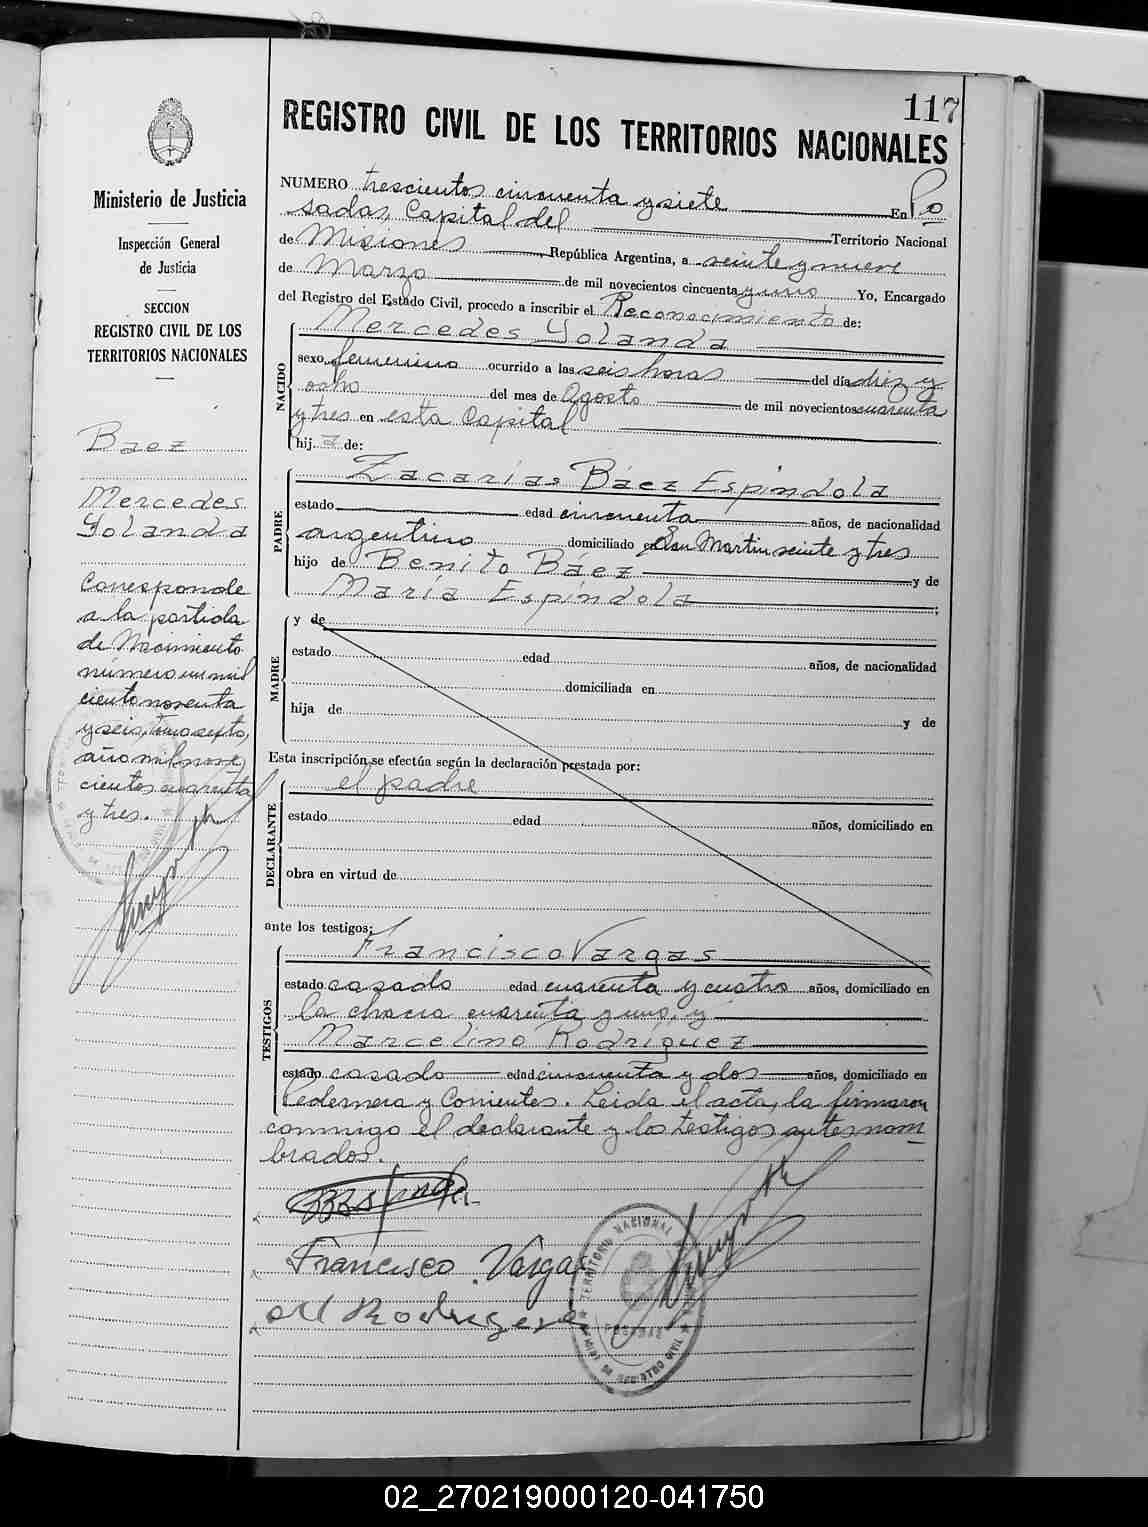 117
REGISTRO CIVIL DE LOS TERRITORIOS NACIONALES
Ministerio de Justicia
Inspección General
de Justicia
SECCION
REGISTRO CIVIL DE LOS
TERRITORIOS NACIONALES
Baez
Mercedes
Yolanda
Corresponde
a la partida
de Nacimiento
número un mil
ciento noventa
y seis, tomo sexto,
año mil nove
cientos cuarenta
y tres.
NUMERO trescientos cincuenta y siete En Po
sadas, Capital del Territorio Nacional
de Misiones, República Argentina, a veinte y nueve
de Marzo de mil novecientos cincuenta y uno Yo, Encargado
del Registro del Estado Civil, procedo a inscribir el Reconocimiento de:
NACIDO
Mercedes Yolanda
sexo femenino ocurrido a las seis horas del día diez y
ocho del mes de Agosto de mil novecientos cuarenta
y tres en esta Capital
hij a de:
PADRE
Zacarías Báez Espíndola
estado edad cincuenta años, de nacionalidad
argentino domiciliado en San Martin veinte y tres
hijo de Benito Báez y de
María Espíndola;
MADRE
y de
estado edad años, de nacionalidad
domiciliada en
hija de y de
Esta inscripción se efectúa según la declaración prestada por:
DECLARANTE
el padre
estado edad años, domiciliado en
obra en virtud de
ante los testigos:
TESTIGOS
Francisco Vargas
estado casado edad cuarenta y cuatro años, domiciliado en
la chacra cuarenta y uno, y
Marcelino Rodríguez
estado casado edad cincuenta y dos años, domiciliado en
Pedernera y Corrientes. Leida el acta, la firmaron
conmigo el declarante y los testigos antes nom
brados.
Francisco Vargas
M Rodriguez
TERRITORIO NACIONAL
POSADAS
REGISTRO CIVIL
02_270219000120-041750